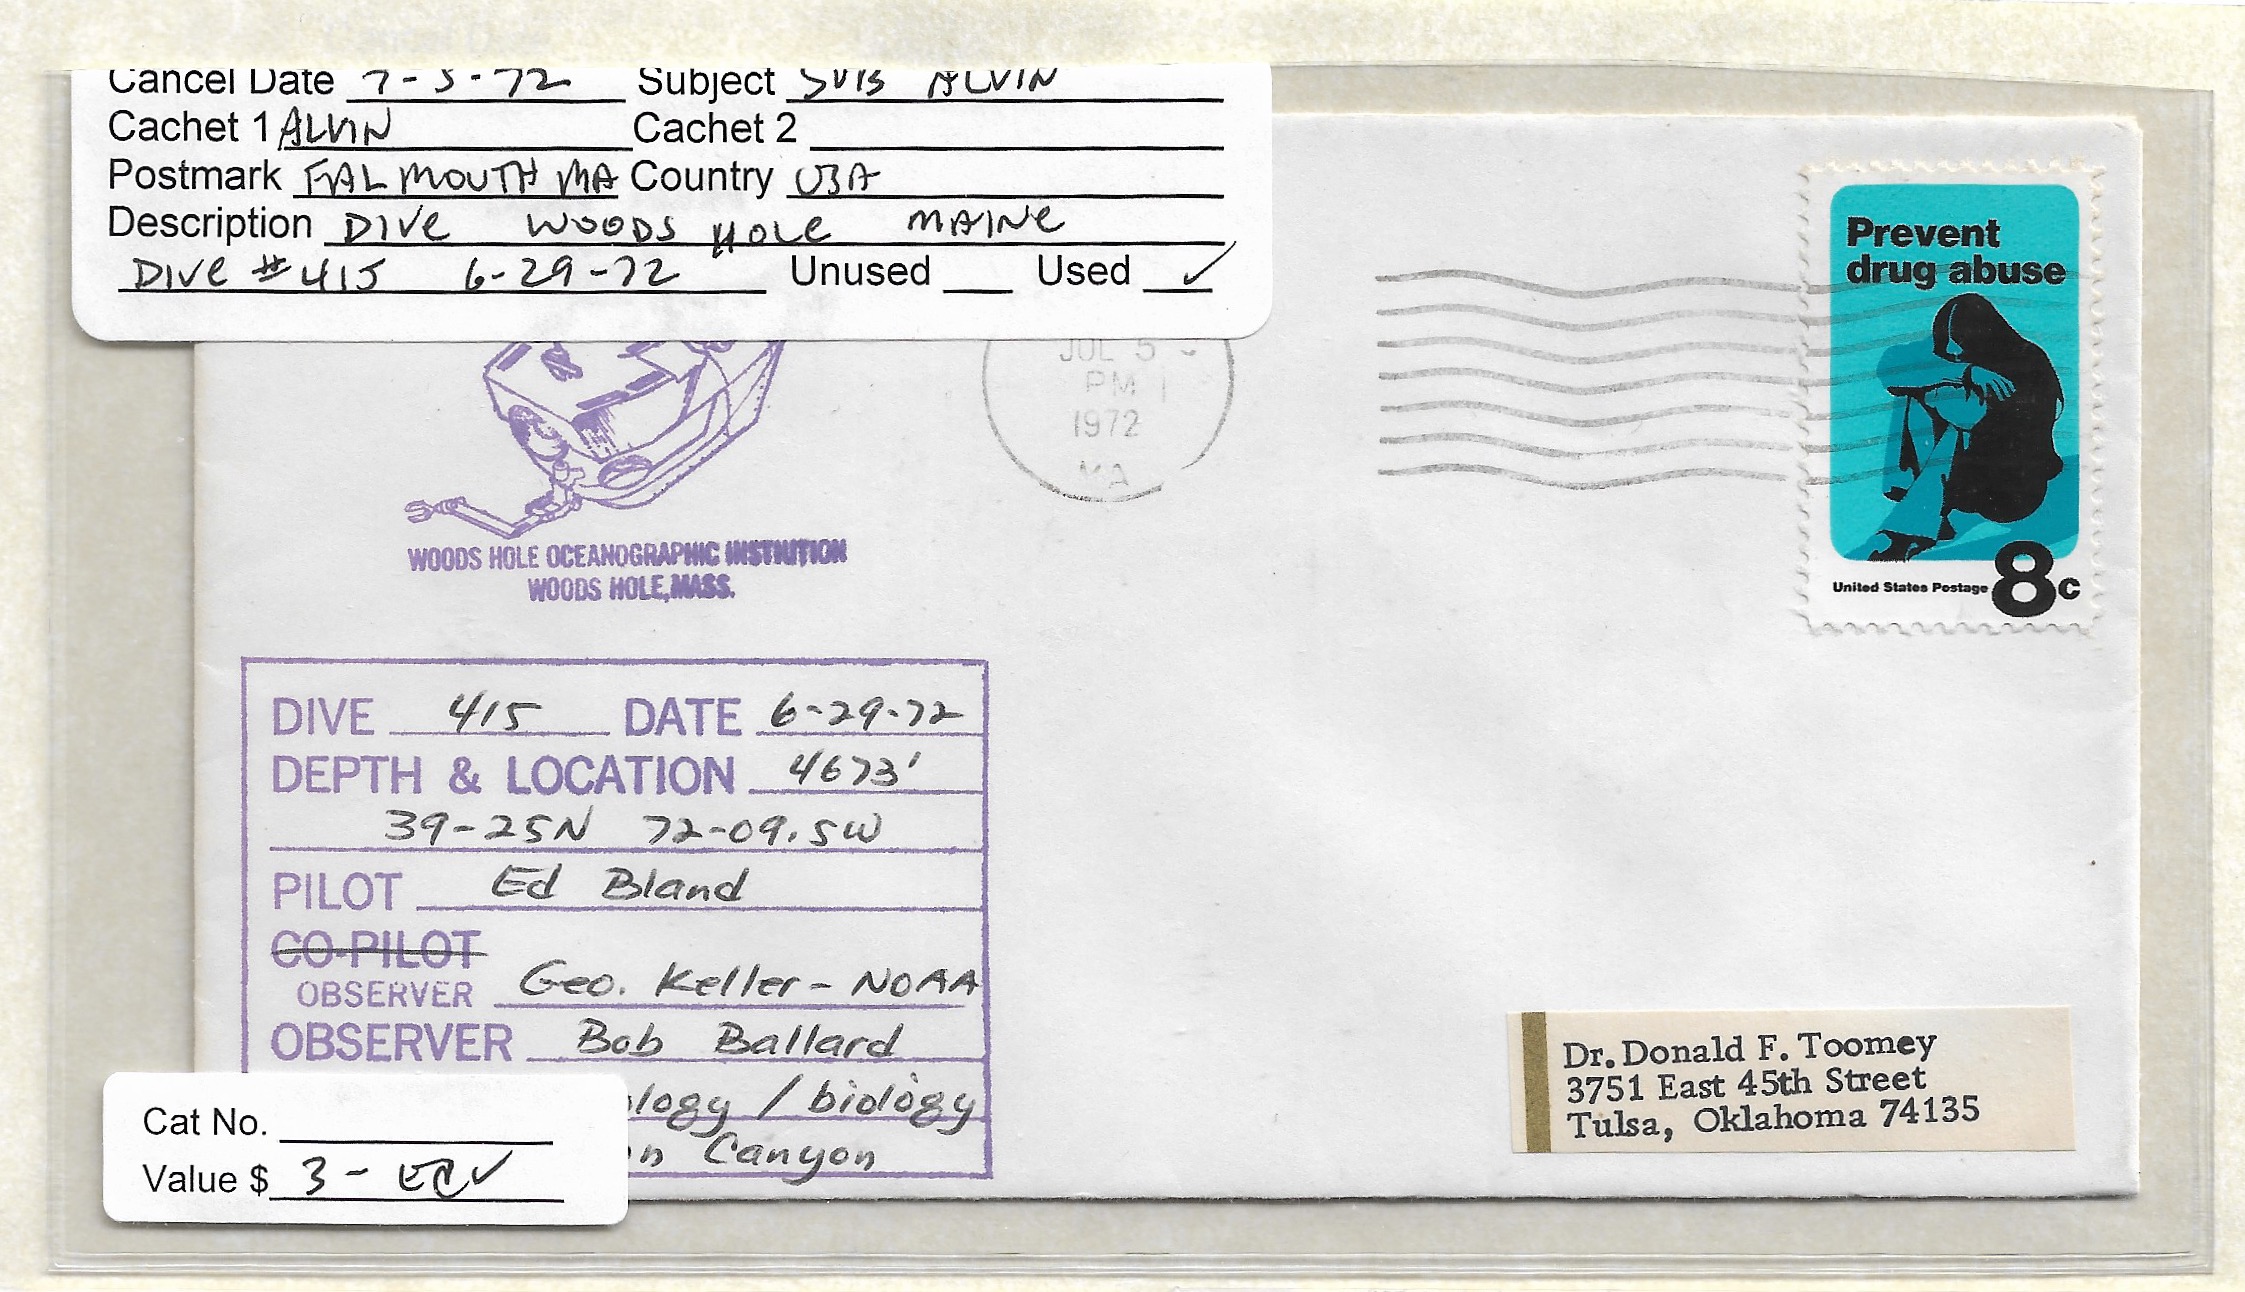 Cancel Date 7-5-72 Subject SUB ALVIN
Cachet 1 ALVIN Cachet 2
Postmark FALMOUTH MA Country USA
Description DIVE WOODS HOLE MAINE
DIVE # 415 6-29-72 Unused Used ✓
JUL 5
PM
1972
MA
Prevent
drug abuse
United States Postage 8c
WOODS HOLE OCEANOGRAPHIC INSTITUTION
WOODS HOLE, MASS.
DIVE 415 DATE 6-29-72
DEPTH & LOCATION 4673'
39-25N 72-09.5W
PILOT Ed Bland
CO-PILOT
OBSERVER Geo. Keller - NOAA
OBSERVER Bob Ballard
logy / biology
n Canyon
Cat No.
Value $ 3 -
Dr. Donald F. Toomey
3751 East 45th Street
Tulsa, Oklahoma 74135